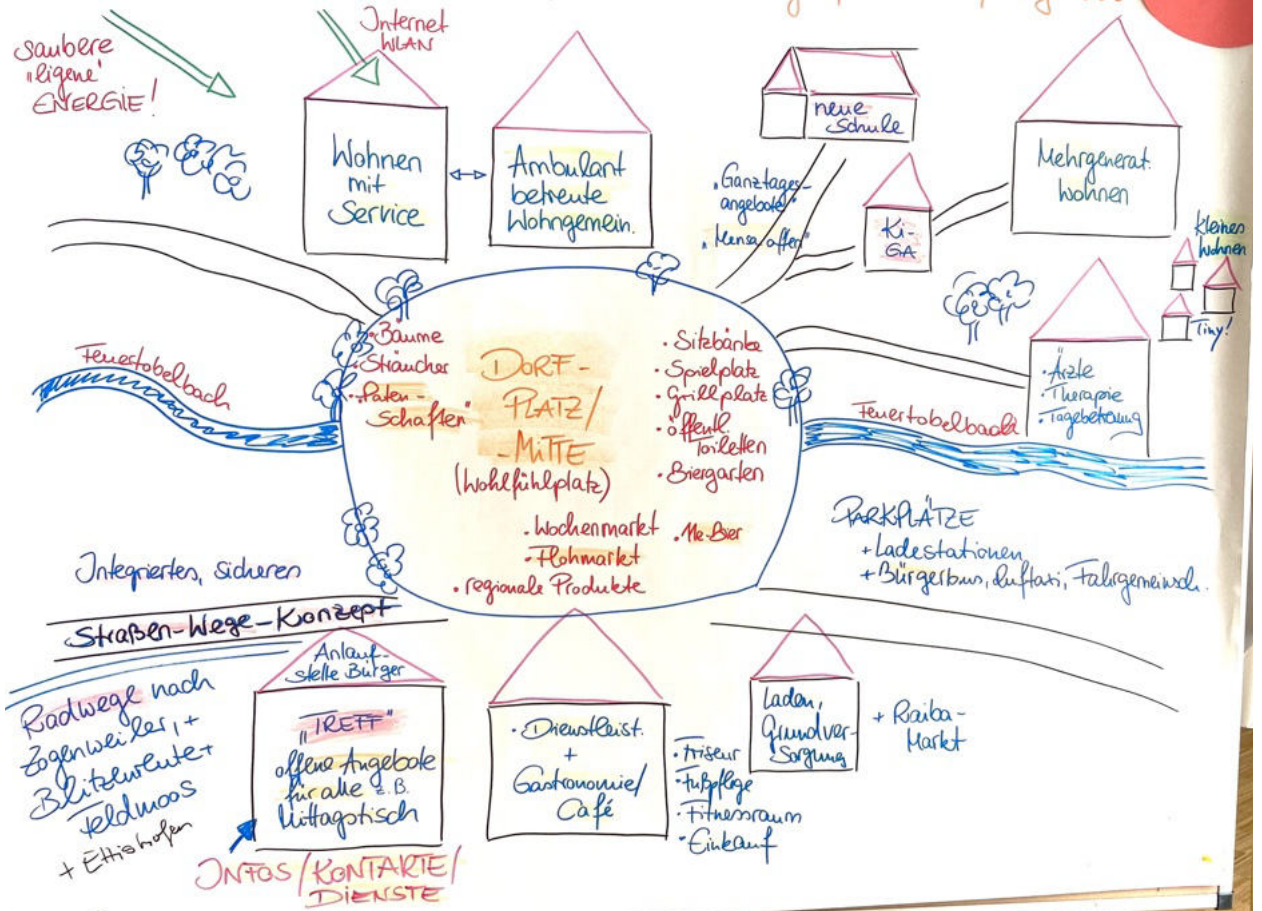 saubere
"eigene"
ENERGIE!
Internet
WLAN
Wohnen
mit
Service
Ambulant
betreute
Wohngemein.
neue
Schule
"Ganztages-
angebote"
"Mensa offen"
Ki-
GA
Mehrgenerat.
wohnen
kleines
Wohnen
Tiny!
• Ärzte
• Therapie
• Tagebetreuung
Feuertobelbach
Feuertobelbach
• Bäume
• Sträucher
• "Paten-
schaften"
DORF-
PLATZ/
-MITTE
(Wohlfühlplatz)
• Sitzbänke
• Spielplatz
• Grillplatz
• öffentl.
Toiletten
• Biergarten
• Wochenmarkt
• Flohmarkt
• regionale Produkte
PARKPLÄTZE
+ Ladestationen
+ Bürgerbus, Ruftaxi, Fahrgemeinsch.
Integriertes, sicheres
Straßen-Wege-Konzept
Radwege nach
Zogenweiler, +
Blitzenreute +
Feldmoos
+ Ettishofen
Anlauf-
stelle Bürger
"TREFF"
offene Angebote
für alle z.B.
Mittagstisch
INFOS/KONTAKTE/
DIENSTE
• Dienstleist.
+
Gastronomie/
Café
• Friseur
• Fußpflege
• Fitnessraum
• Einkauf
Laden,
Grundver-
sorgung
+ Raiba-
Markt